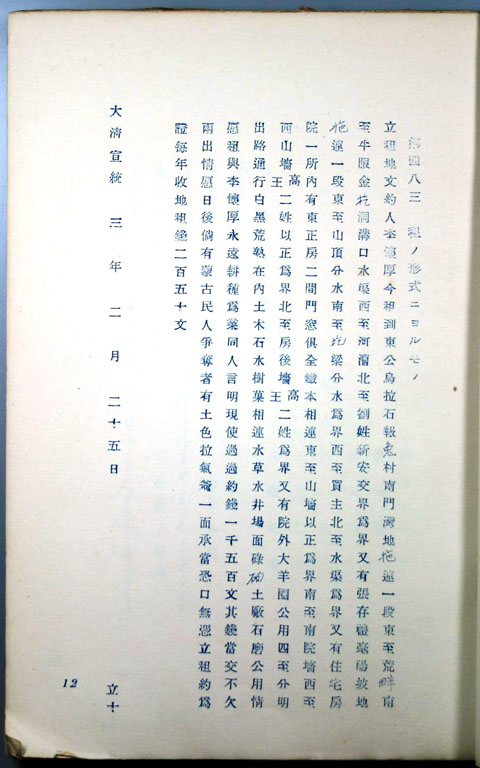 第四八三 租ノ形式ニヨルモノ
立租地文約人李德厚今相到東公烏拉石報兔村南門灣地拖遠一段東至荒畔南
至牛眼金花洞溝口水渠西至河灣北至劉姓新安交界爲界又有張存禮毫陽披地
拖遠一段東至山頂分水南至圪梁分水爲界西至買主北至水渠爲界又有住宅房
院一所內有東正房二間門窓俱全鐵本相連東至山墻以正爲界南至南院墻西至
西山墻高王二姓以正爲界北至房後墻高王二姓爲界又有院外大羊圈公用四至分明
出路通行白黑荒熟在內土木石水樹菓相連水草水井場面碌碡土廠石磨公用情
愿租與李德厚永遠耕種爲業同人言明現使過過約錢一千五百文其錢當交不欠
兩出情愿日後倘有蒙古民人爭奪者有土色拉氣爺一面承當恐口無憑立租約爲
證每年收地租錢二百五十文
大清宣統三年二月二十五日 立十
12